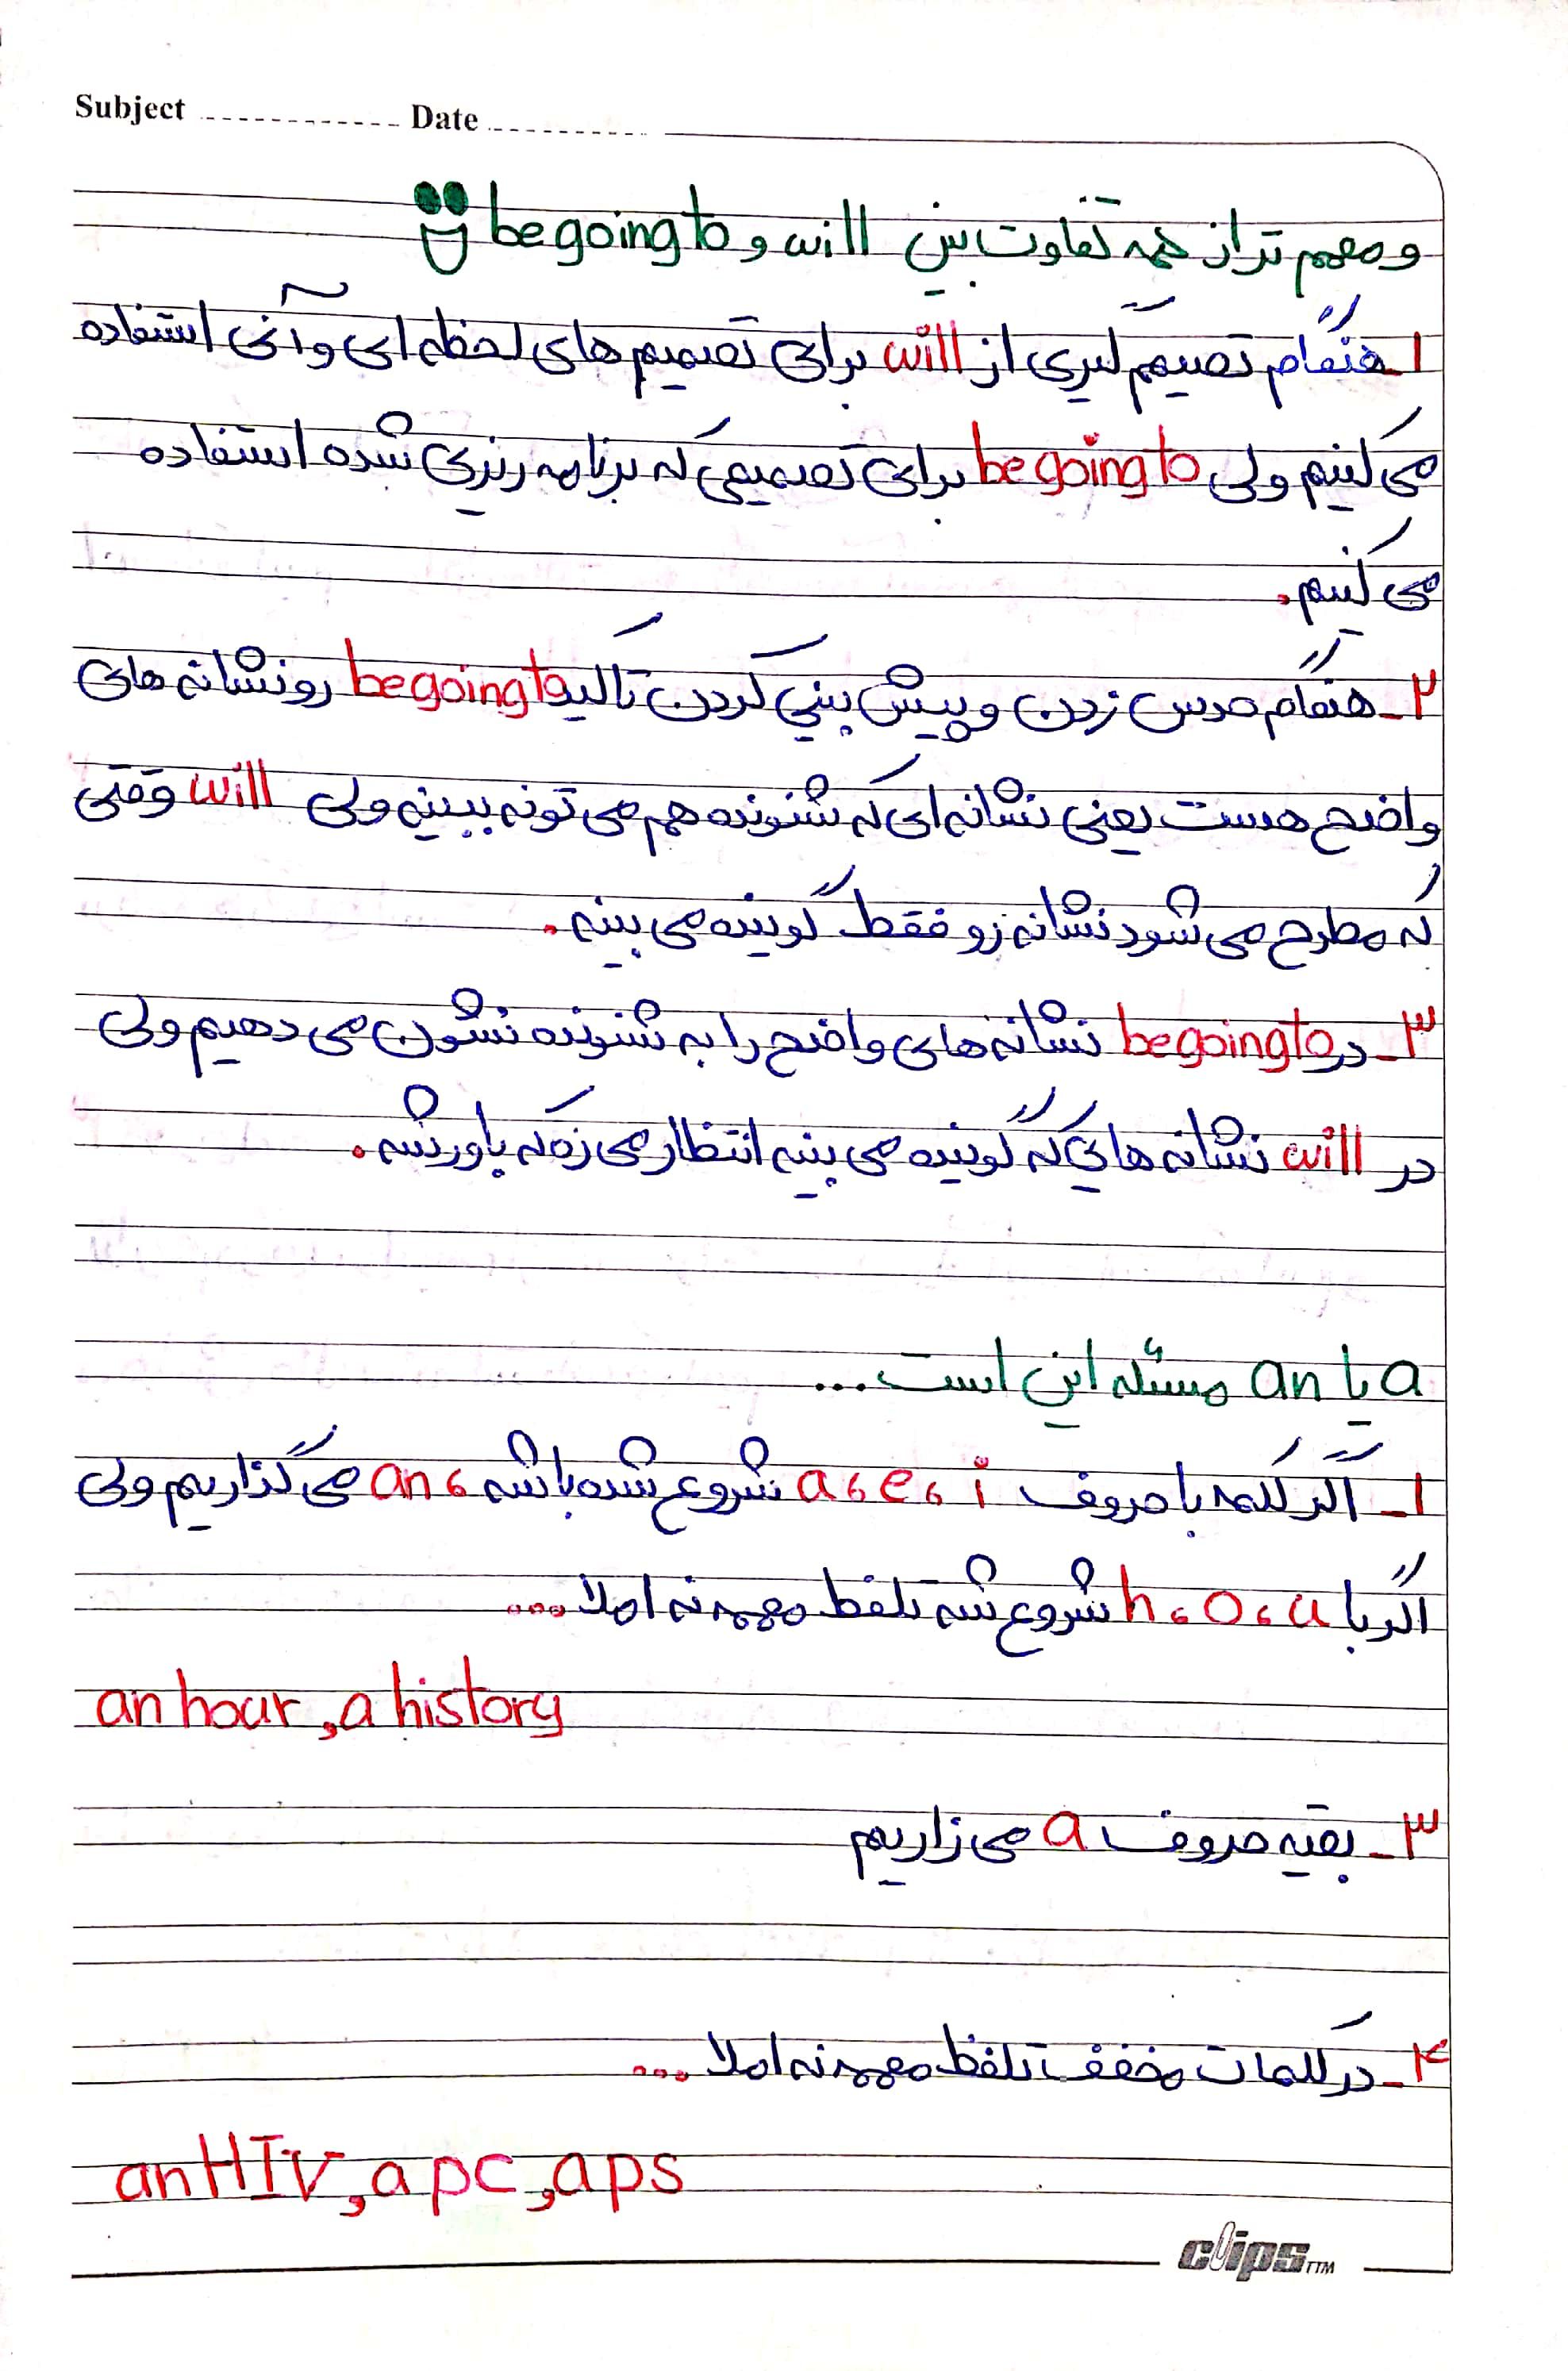 Subject ............ Date ..........
و مهم تر از همه تفاوت بین will و be going to
۱_ هنگام تصمیم گیری از will برای تصمیم های لحظه ای و آنی استفاده
می کنیم ولی be going to برای تصمیمی که برنامه ریزی شده استفاده
می کنیم.
۲_ هنگام حدس زدن و پیش بینی کردن تاکید be going to رو نشانه های
واضح هست یعنی نشانه ای که شنونده هم می تونه ببینه ولی will وقتی
که مطرح می شود نشانه رو فقط گوینده می بینه.
۳_ در be going to نشانه های واضح را به شنونده نشون می دهیم ولی
در will نشانه هایی که گوینده می بینه انتظار می ره که باور شه.
a یا an مسئله این است...
۱_ اگر کلمه با حروف a، e، i شروع شده باشه an، می گذاریم ولی
اگر با h، o، u شروع شه تلفظ مهمه نه املا...
an hour, a history
۳_ بقیه حروف a می زاریم
۴_ در کلمات مخفف تلفظ مهمه نه املا...
an HIV, a pc, a ps
clips TTM